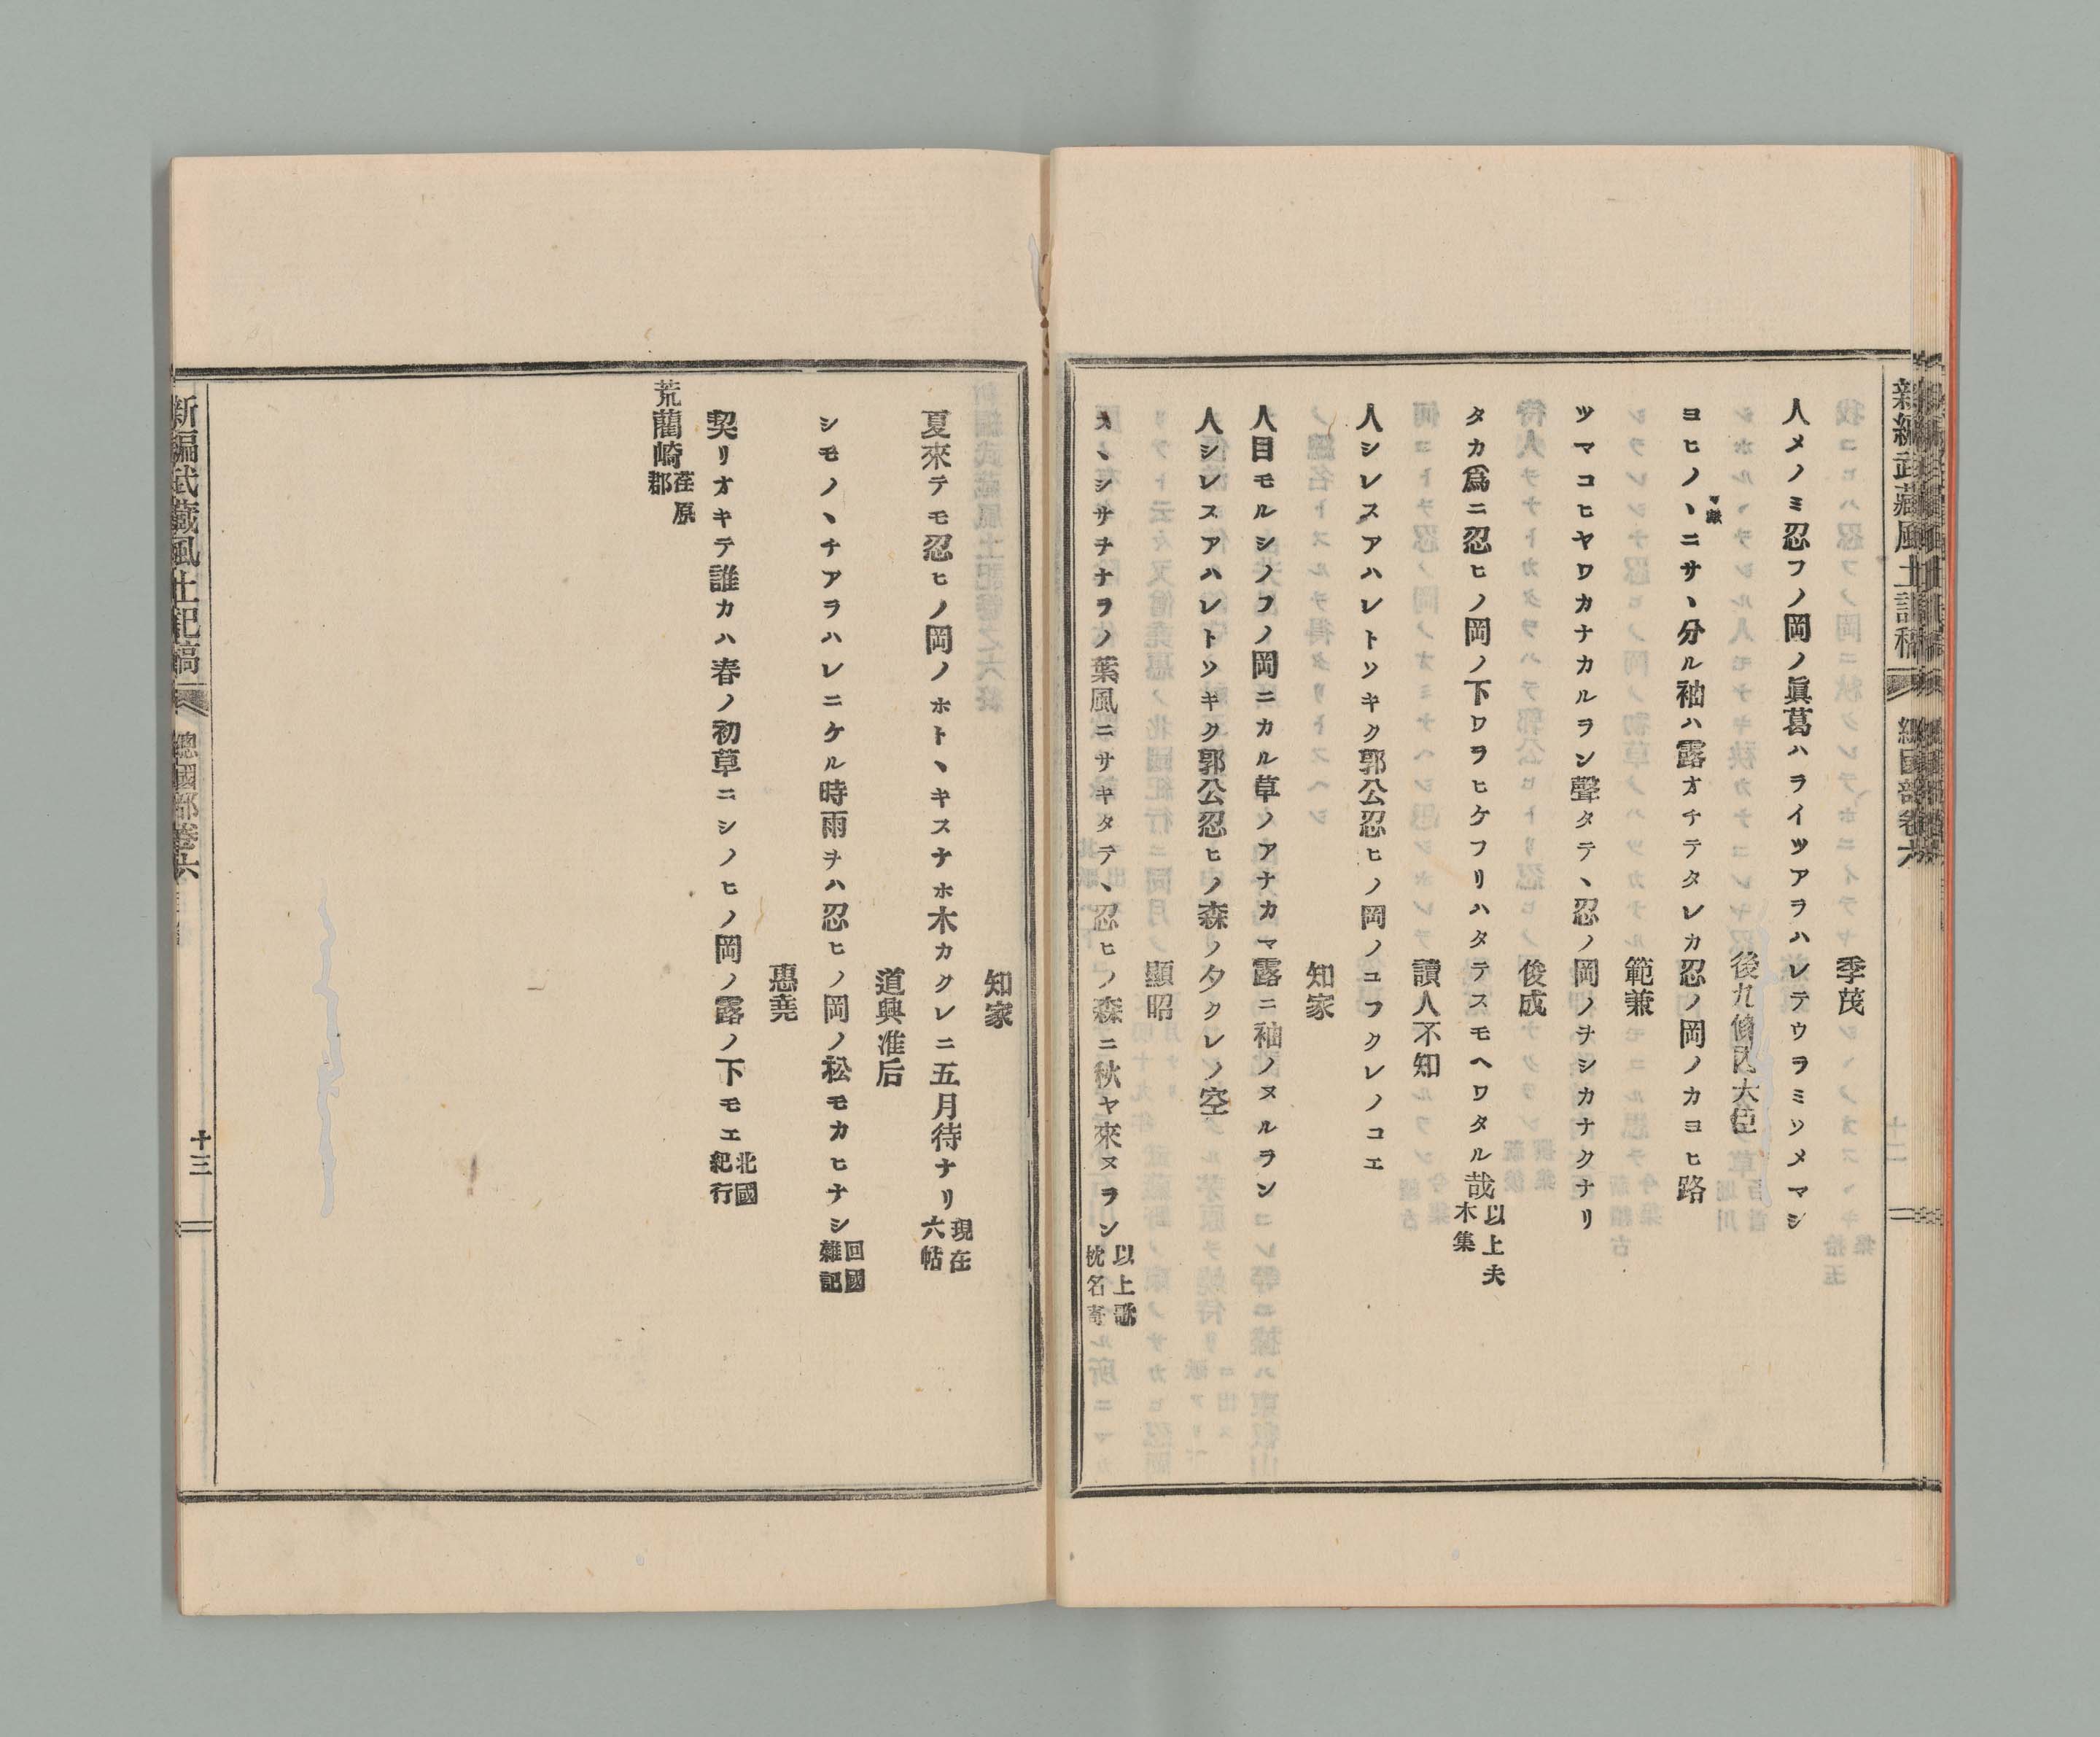 新編武藏風土記稿
總國部卷六
季茂
人メノミ忍フノ岡ノ眞葛ハライツアラハレテウラミソメマシ
後九條内大臣
ヨヒノヽニサヽ分ル袖ハ露オチテタレカ忍ノ岡ノカヨヒ路
範兼
ツマコヒヤワカナカルラン聲タテヽ忍ノ岡ノヲシカナクナリ
俊成
タカ爲ニ忍ヒノ岡ノ下ワラヒケフリハタテスモヘワタル哉 以上夫木集
讀人不知
人シレスアハレトソキク郭公忍ヒノ岡ノユフクレノコエ
知家
人目モルシノフノ岡ニカル草ノアナカマ露ニ袖ノヌルラン
人シレスアハレトソキク郭公忍ヒノ森ノ夕クレノ空
顯昭
スヽシサヲナラノ葉風ニサキタテヽ忍ヒノ森ニ秋ヤ來ヌラン 以上歌枕名寄
知家
夏來テモ忍ヒノ岡ノホトヽキスナホ木カクレニ五月待ナリ 現在六帖
道興准后
シモノヽチアラハレニケル時雨ヲハ忍ヒノ岡ノ松モカヒナシ 回國雜記
惠堯
契リオキテ誰カハ春ノ初草ニシノヒノ岡ノ露ノ下モエ 北國紀行
荒藺崎 荏原郡
新編武藏風土記稿
總國部卷六
十三